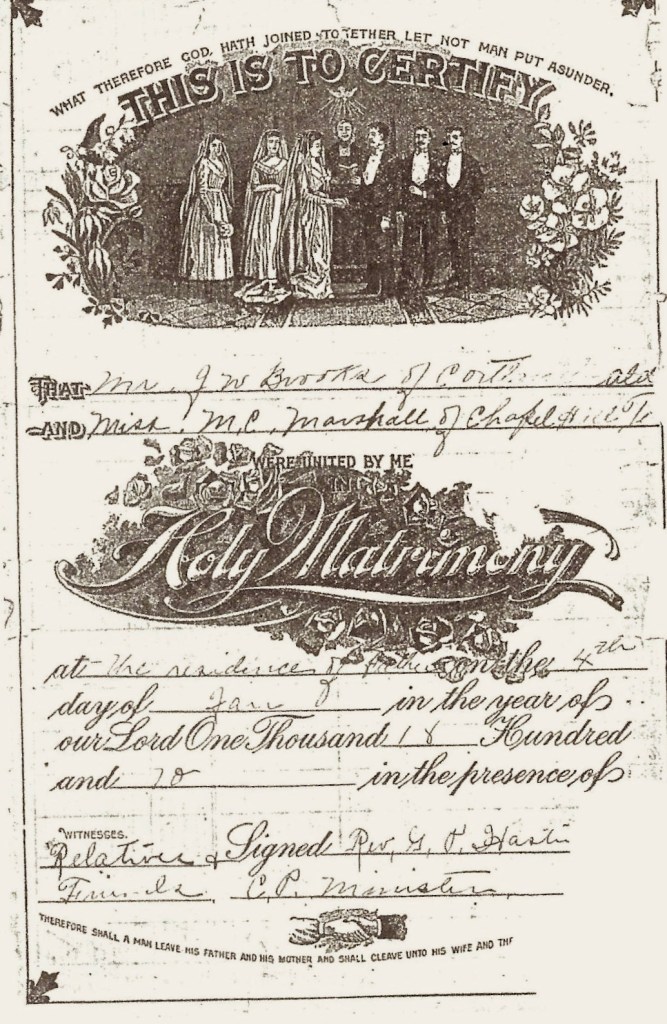 WHAT THEREFORE GOD, HATH JOINED TO ETHER LET NOT MAN PUT ASUNDER.
THIS IS TO CERTIFY,
THAT Mr. J W Brooks of
AND Miss. M. C. Marshall of Chapel Hill
WERE UNITED BY ME
IN
Holy Matrimony
at the residence of father on the 4th
day of Jan in the year of
our Lord One Thousand 18 Hundred
and 70 in the presence of
WITNESSES.
Relatives & Signed Rev. G.
Friends. C. P. Minister.
THEREFORE SHALL A MAN LEAVE HIS FATHER AND HIS MOTHER AND SHALL CLEAVE UNTO HIS WIFE AND THE